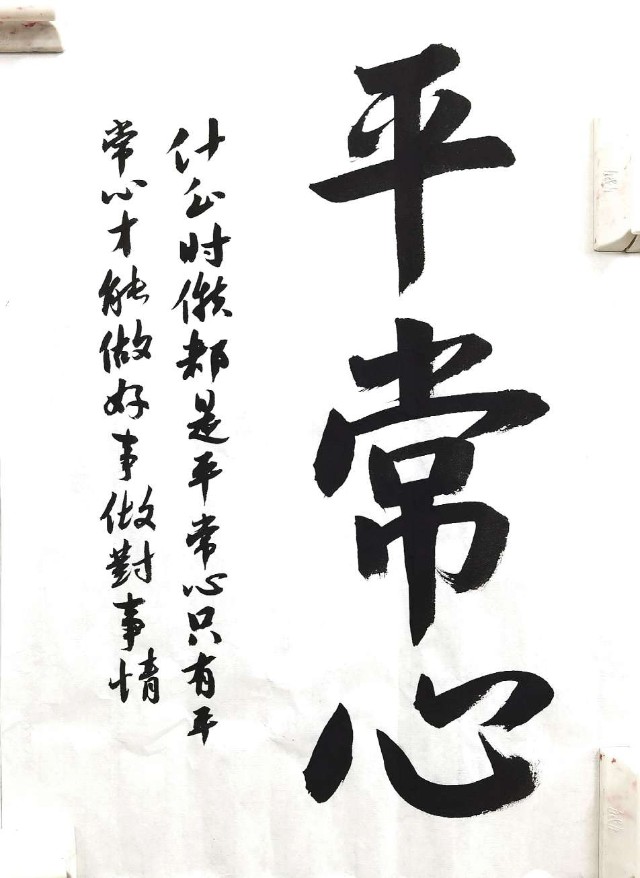 平常心
什么时候都是平常心只有平
常心才能做好事做對事情